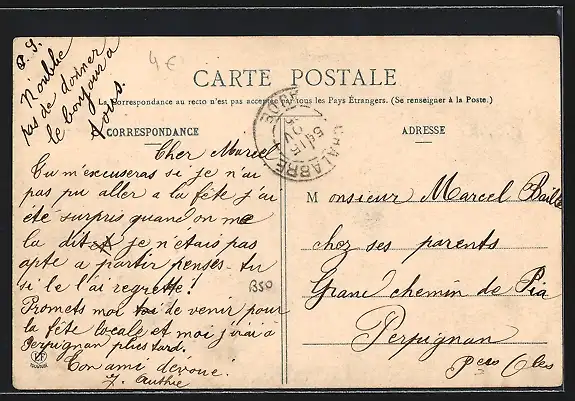 P. S.
N'oublie
pas de donner
le bonjour a
tous.
4€
CARTE POSTALE
La Correspondance au recto n'est pas acceptée par tous les Pays Étrangers. (Se renseigner à la Poste.)
CORRESPONDANCE
Cher Marcel
Tu m'excuseras si je n'ai
pas pu aller a la fête j'ai
été surpris quand on me
la dit je n'étais pas
apte a partir penses-tu
si je l'ai regretté!
Promets moi de venir pour
la fête locale et moi j'irai a
Perpignan plus tard.
Ton ami dévoué.
J. Authie
B50
CHALABRE
AUDE
ADRESSE
Monsieur Marcel Baille
chez ses parents
Grand chemin de Pia
Perpignan
Pees Oles